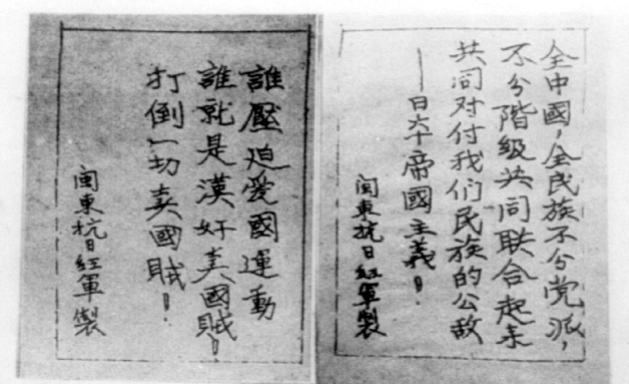 全中國，全民族不分党派，
不分階級共同联合起来
共同对付我们民族的公敌
—日本帝國主義！
閩東抗日紅軍製
誰壓迫愛國運動
誰就是漢奸卖國賊！
打倒一切卖國賊！
閩東抗日紅軍製